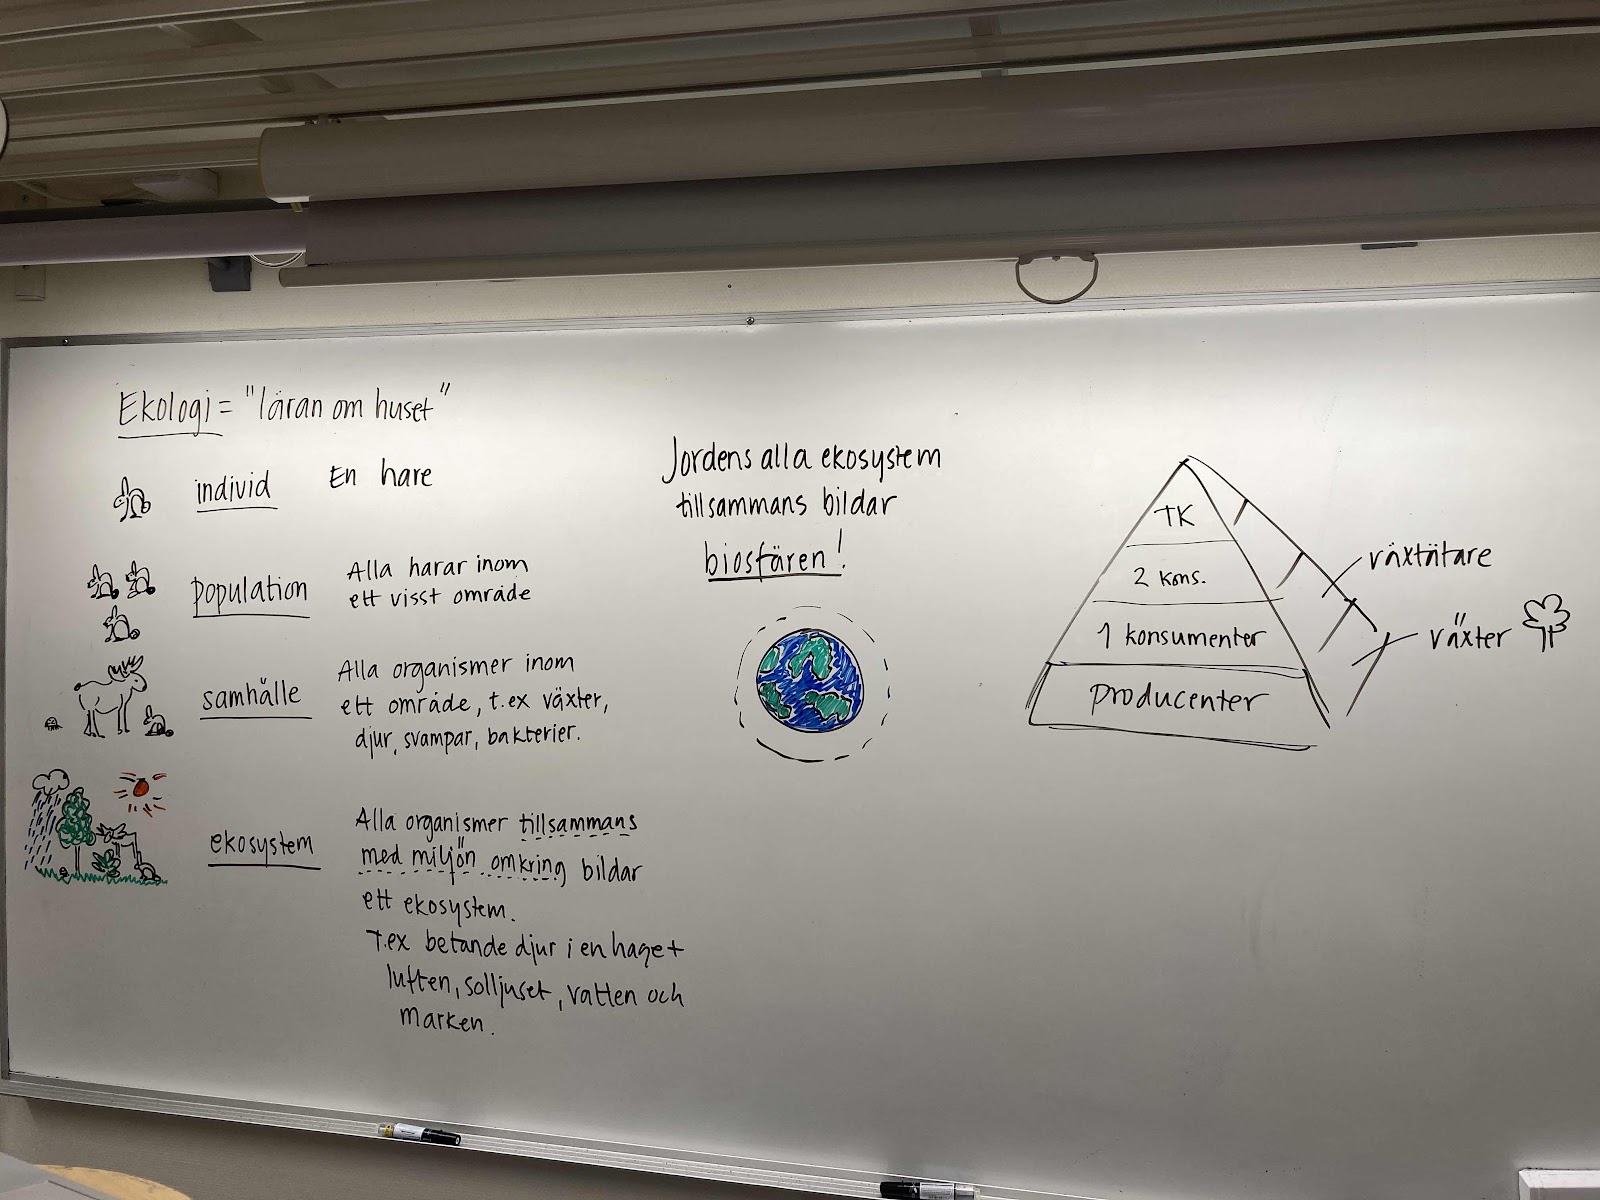 Ekologi = "läran om huset"
individ En hare
population Alla harar inom
ett visst område
samhälle Alla organismer inom
ett område, t.ex växter,
djur, svampar, bakterier.
ekosystem Alla organismer tillsammans
med miljön omkring bildar
ett ekosystem.
T.ex betande djur i en hage +
luften, solljuset, vatten och
marken.
Jordens alla ekosystem
tillsammans bildar
biosfären!
TK
2 kons.
1 konsumenter
producenter
växtätare
växter